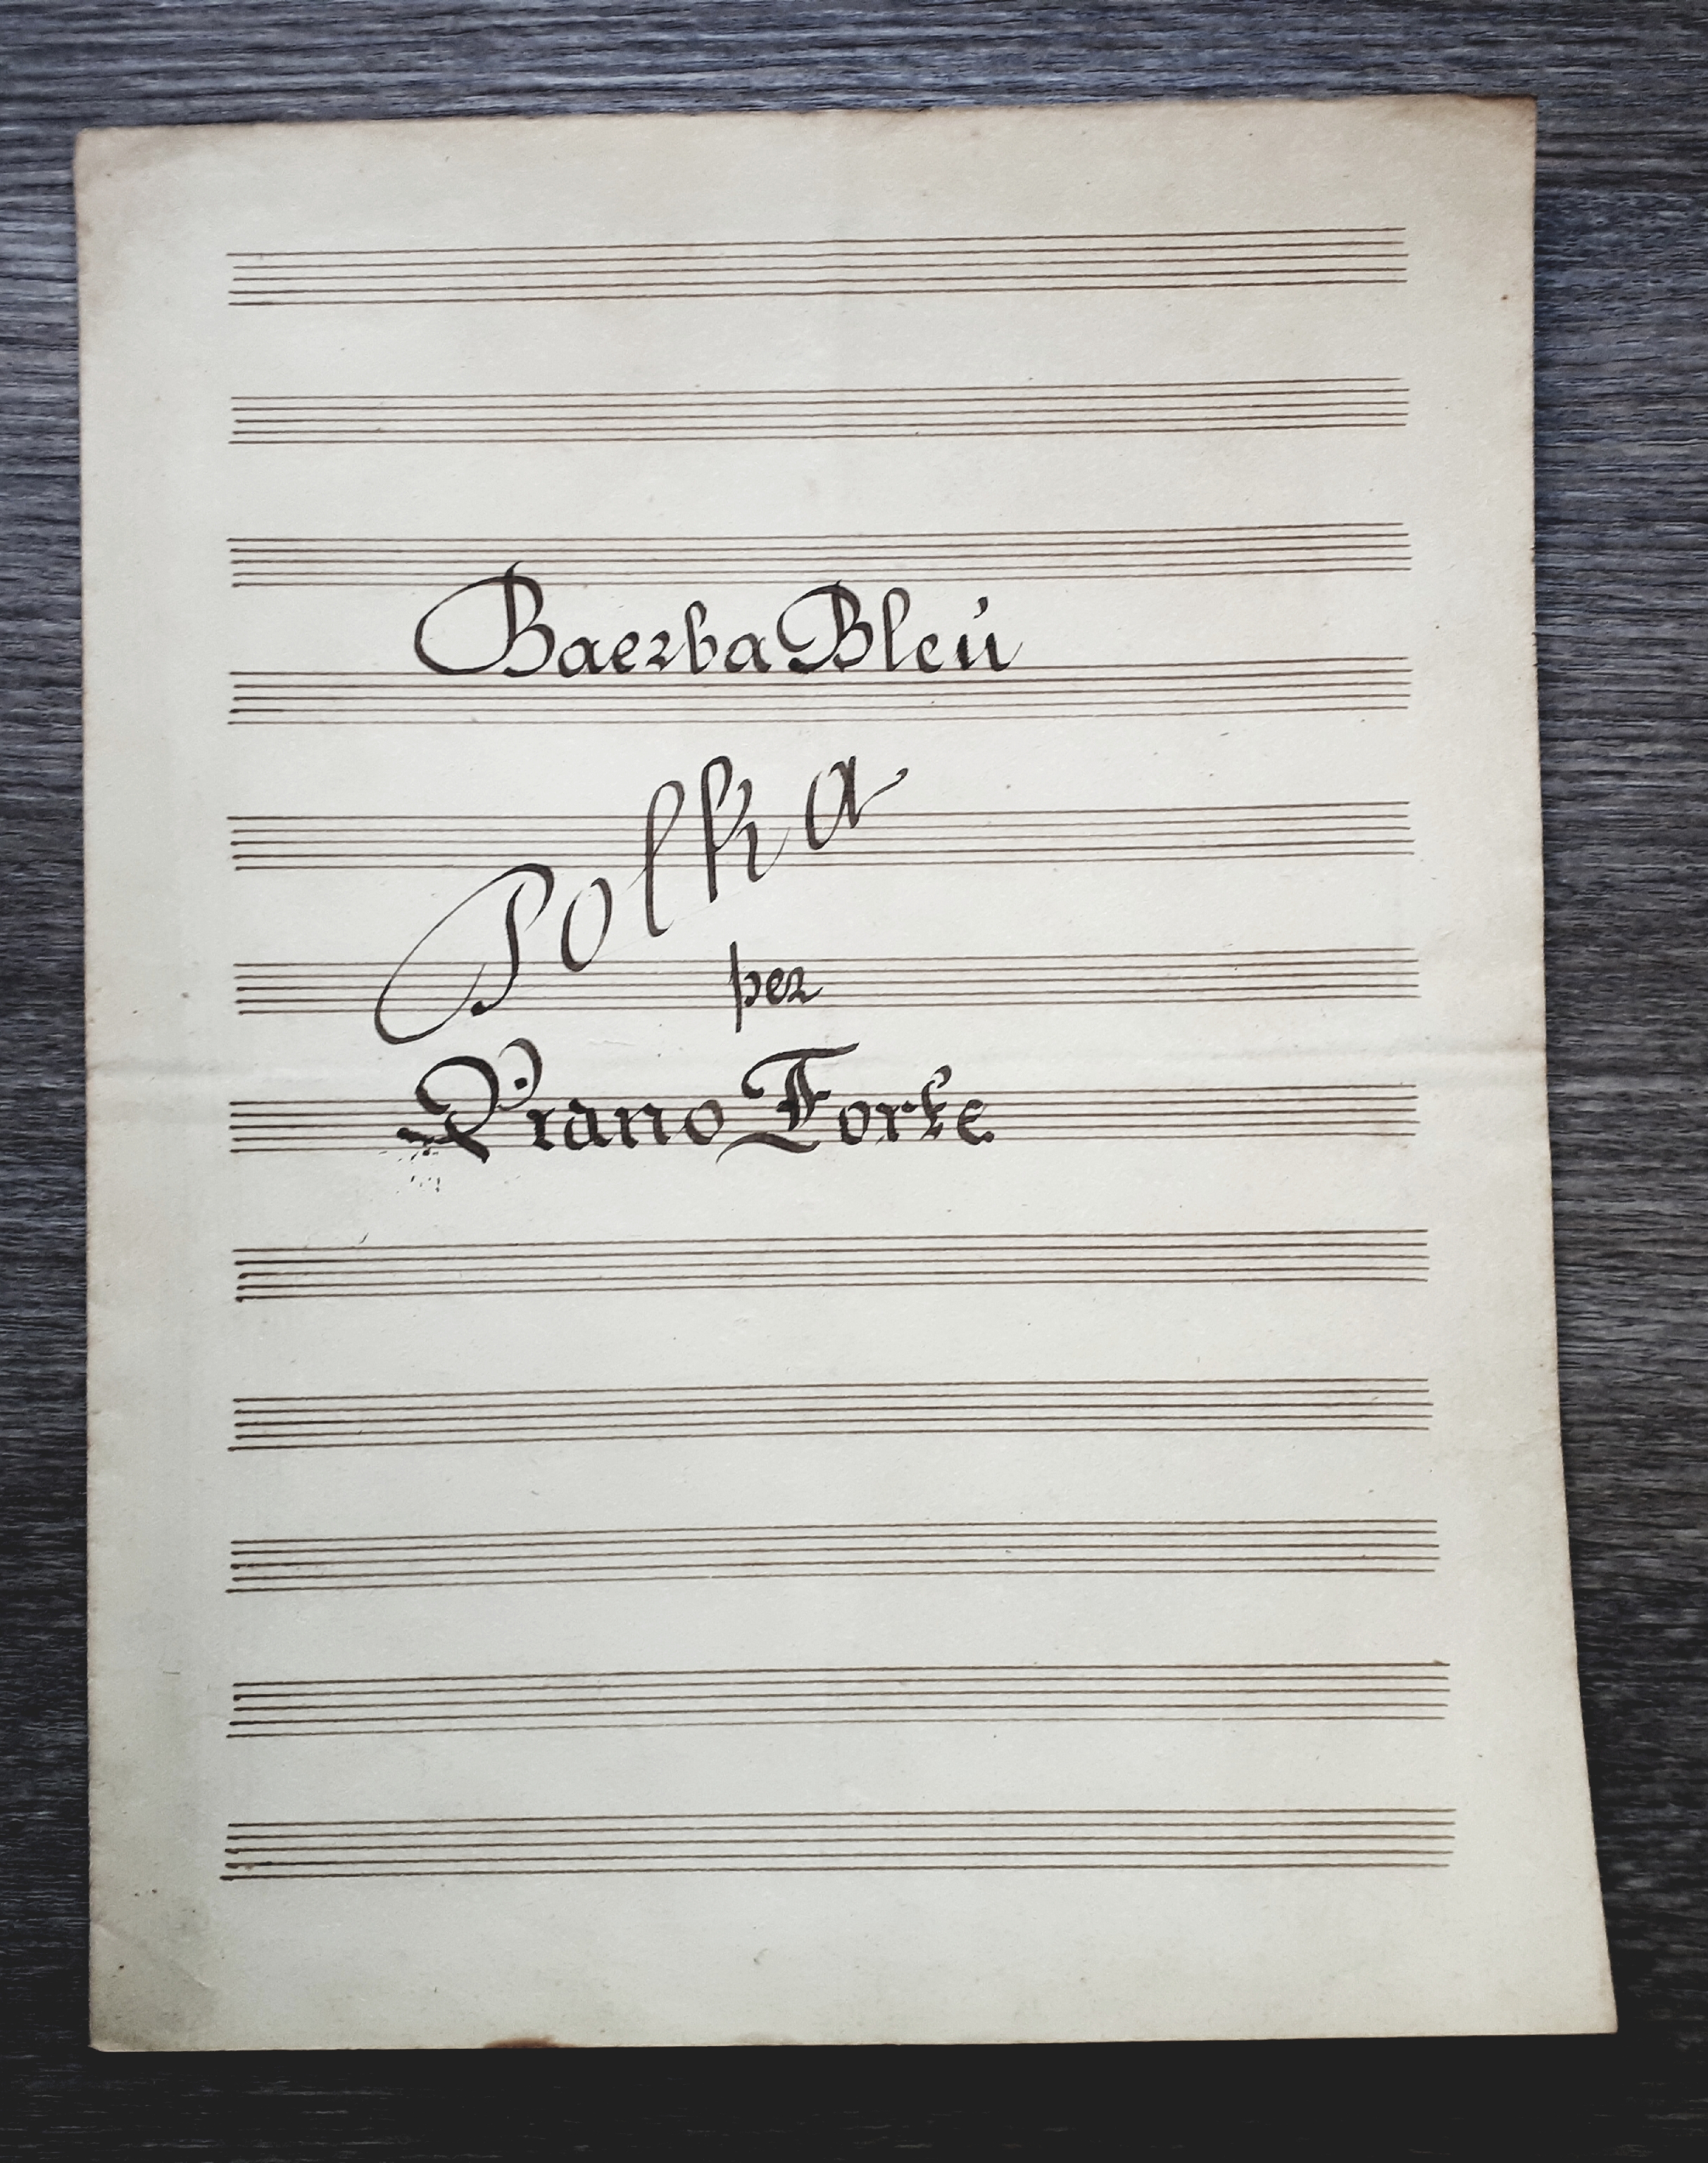 Baerba Bleu
Polka
per
Piano Forte